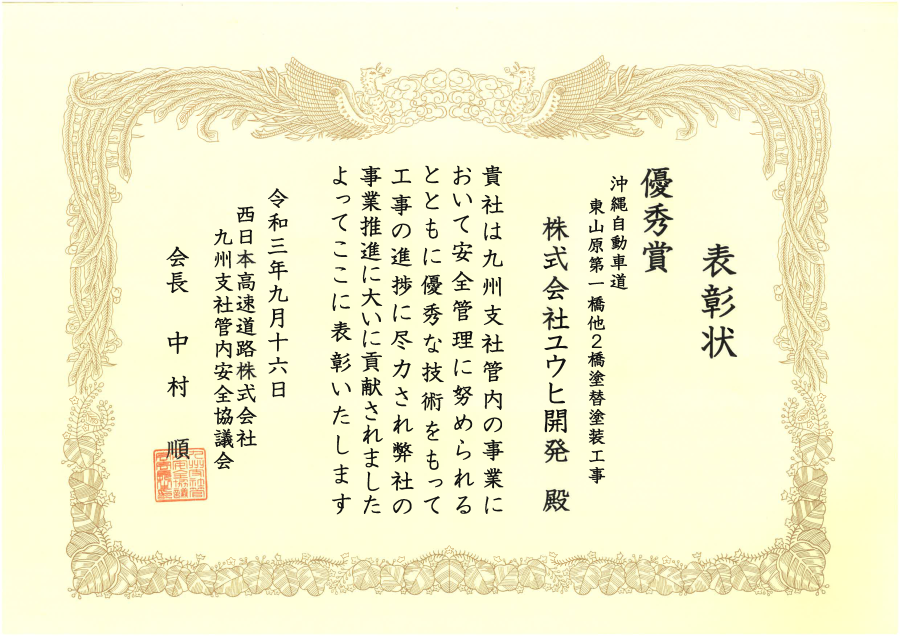 表彰状
優秀賞
沖縄自動車道
東山原第一橋他2橋塗替塗装工事
株式会社ユウヒ開発 殿
貴社は九州支社管内の事業に
おいて安全管理に努められる
とともに優秀な技術をもって
工事の進捗に尽力され弊社の
事業推進に大いに貢献されました
よってここに表彰いたします
令和三年九月十六日
西日本高速道路株式会社
九州支社管内安全協議会
会長 中村 順